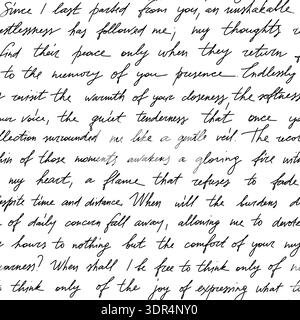 Since I last parted from you, an unshakable
restlessness has followed me, my thoughts
find their peace only when they return
to the memory of you presence. Endlessly
revisit the warmth of your closeness, the softness
your voice, the quiet tenderness that once
surrounded me like a gentle veil. The
of those moments awakens a glowing fire
my heart, a flame that refuses to fade
despite time and distance. When will the burdens
of daily concern fall away, allowing me to devote
hours to nothing but the comfort of your
When shall I be free to think only of
think only of the joy of expressing what
alamy
Image ID: 3DR4NY0
www.alamy.com